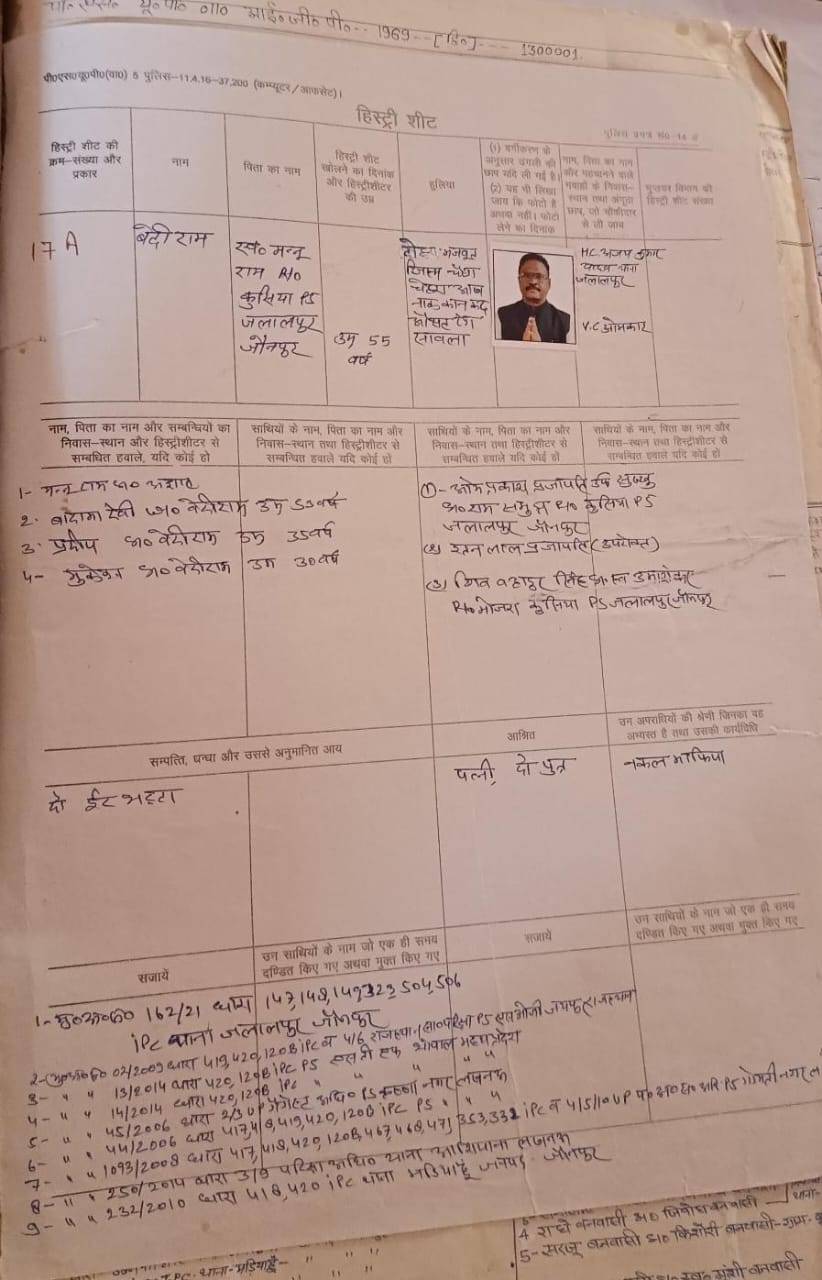 यू० पी० जी० आई० जी० पी०-- 1969--[हि०]--- 1300001.
पी०एस०यू०पी०(पा०) 5 पुलिस-11.4.16-37,200 (कम्प्यूटर/आफसेट)।
हिस्ट्री शीट
पुलिस प्रपत्र सं०
हिस्ट्री शीट की क्रम-संख्या और प्रकार
नाम
पिता का नाम
हिस्ट्री शीट खोलने का दिनांक और हिस्ट्रीशीटर की उम्र
हुलिया
(1) वर्गीकरण के अनुसार उंगली की छाप यदि ली गई है। (2) यह भी लिखा जाय कि फोटो है अथवा नहीं। फोटो लेने का दिनांक
नाम, पिता का नाम और पहचानने वाले गवाहों के निवास-स्थान तथा अंगूठा छाप, जो चौकीदार से ली जाय
गुप्तचर विभाग की हिस्ट्री शीट संख्या
17 A
बेदी राम
स्व० मन्नू
राम R/o
कुसिया PS
जलालपुर
जौनपुर
उम्र 55
वर्ष
मजबूत
जिस्म
नाक कान कद
औसत रंग
सावला
HC अजय कुमार
यादव थाना
जलालपुर
V.C ओमकार
नाम, पिता का नाम और सम्बन्धियों का निवास-स्थान और हिस्ट्रीशीटर से सम्बंधित हवाले, यदि कोई हो
साथियों के नाम, पिता का नाम और निवास-स्थान तथा हिस्ट्रीशीटर से सम्बन्धित हवाले यदि कोई हो
साथियों के नाम, पिता का नाम और निवास-स्थान तथा हिस्ट्रीशीटर से सम्बन्धित हवाले यदि कोई हो
साथियों के नाम, पिता का नाम और निवास-स्थान तथा हिस्ट्रीशीटर से सम्बन्धित हवाले यदि कोई हो
1- मन्नू राम
2. बादामा देवी w/o बेदीराम उम्र 55 वर्ष
3. प्रदीप s/o बेदीराम उम्र 35 वर्ष
4- s/o बेदीराम उम्र 30 वर्ष
① - ओम प्रकाश प्रजापति उर्फ
s/o राम समुझ R/o कुसिया PS
जलालपुर जौनपुर
(2) रतन लाल प्रजापति (उपरोक्त)
(3) शिव बहादुर सिंह s/o स्व उमाशंकर
R/o मौजरा कुसिया PS जलालपुर जौनपुर
सम्पत्ति, धन्धा और उससे अनुमानित आय
आश्रित
उन अपराधियों की श्रेणी जिनका वह अभ्यस्त है तथा उसकी कार्यविधि
दो ईट भट्टा
पत्नी, दो पुत्र
नकल माफिया
सजायें
उन साथियों के नाम जो एक ही समय दण्डित किए गए अथवा मुक्त किए गए
सजायें
उन साथियों के नाम जो एक ही समय दण्डित किए गए अथवा मुक्त किए गए
1- मु०अ०सं० 162/21 धारा 147, 148, 149, 323, 504, 506
IPC थाना जलालपुर जौनपुर
2- मु०अ०सं० 02/2009 धारा 419, 420, 120B IPC व 4/6 राजस्थान सा० परीक्षा PS एस ओ जी जयपुर राजस्थान
3- " " 13/2014 धारा 420, 120B IPC PS एस टी एफ भोपाल मध्यप्रदेश
4- " " 14/2014 धारा 420, 120B IPC " " " "
5- " " 45/2006 धारा 2/3 UP गैंगेस्टर अधि० PS कृष्णा नगर लखनऊ
6- " " 44/2006 धारा 417, 418, 419, 420, 120B IPC PS " "
7- " " 1093/2008 धारा 417, 418, 420, 120B, 467, 468, 471, 353, 332 IPC व 4/5/10 UP PS गोमती नगर
8- " " 250/2014 धारा 3/9 परीक्षा अधि० थाना आशियाना लखनऊ
9- " " 232/2010 धारा 418, 420 IPC थाना मडियाहूं जनपद- जौनपुर
4 राधे बनवासी s/o बनवासी
5- सरजू बनवासी s/o किशोरी बनवासी-
थाना-मड़ियाहूं-
बनवासी